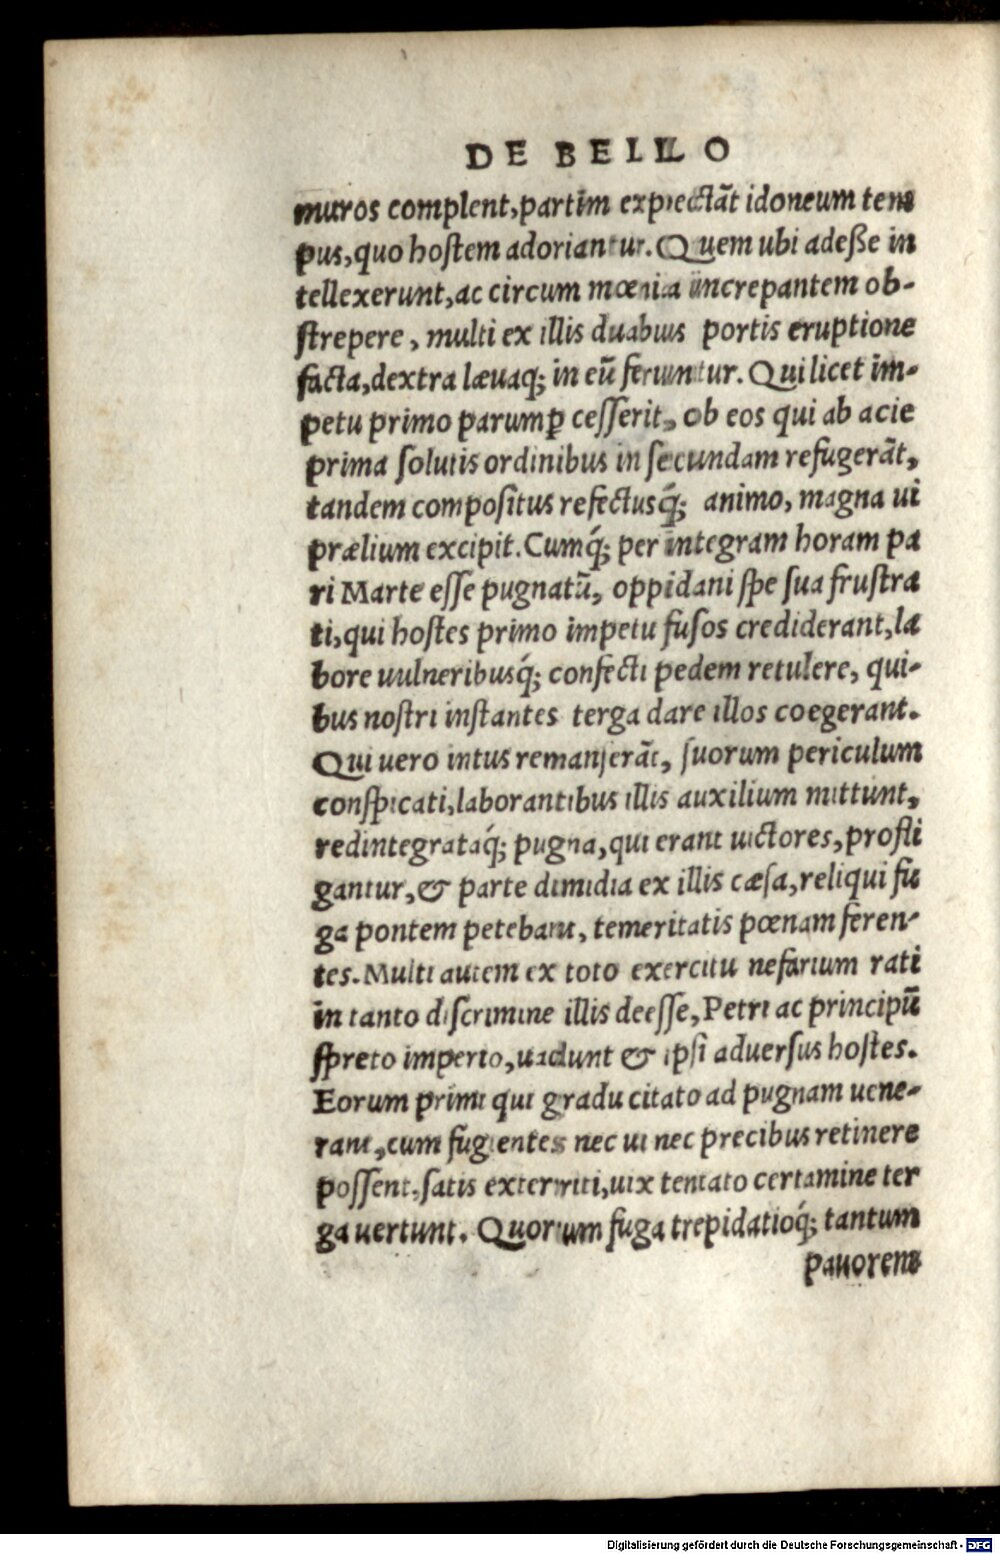 DE BELLO
muros complent, partim expectãt idoneum tem
pus, quo hostem adoriantur. Quem ubi adeße in
tellexerunt, ac circum mœnia increpantem ob-
strepere, multi ex illis duabus portis eruptione
facta, dextra lævaq; in eũ feruntur. Qui licet im-
petu primo parumꝑ cesserit, ob eos qui ab acie
prima solutis ordinibus in secundam refugerãt,
tandem compositus refectusq́; animo, magna ui
prælium excipit. Cumq́; per integram horam pa
ri Marte esse pugnatũ, oppidani spe sua frustra
ti, qui hostes primo impetu fusos crediderant, la
bore uulneribusq́; confecti pedem retulere, qui-
bus nostri instantes terga dare illos coegerant.
Qui uero intus remanserãt, suorum periculum
conspicati, laborantibus illis auxilium mittunt,
redintegrataq́; pugna, qui erant uictores, profli
gantur, & parte dimidia ex illis cæsa, reliqui fu
ga pontem petebant, temeritatis pœnam feren-
tes. Multi autem ex toto exercitu nefarium rati
in tanto discrimine illis deesse, Petri ac principũ
spreto imperio, uadunt & ipsi adversus hostes.
Eorum primi qui gradu citato ad pugnam uene-
rant, cum fugientes nec ui nec precibus retinere
possent, satis exterriti, uix tentato certamine ter
ga vertunt. Quorum fuga trepidatioq́; tantum
pauorem
Digitalisierung gefördert durch die Deutsche Forschungsgemeinschaft - DFG